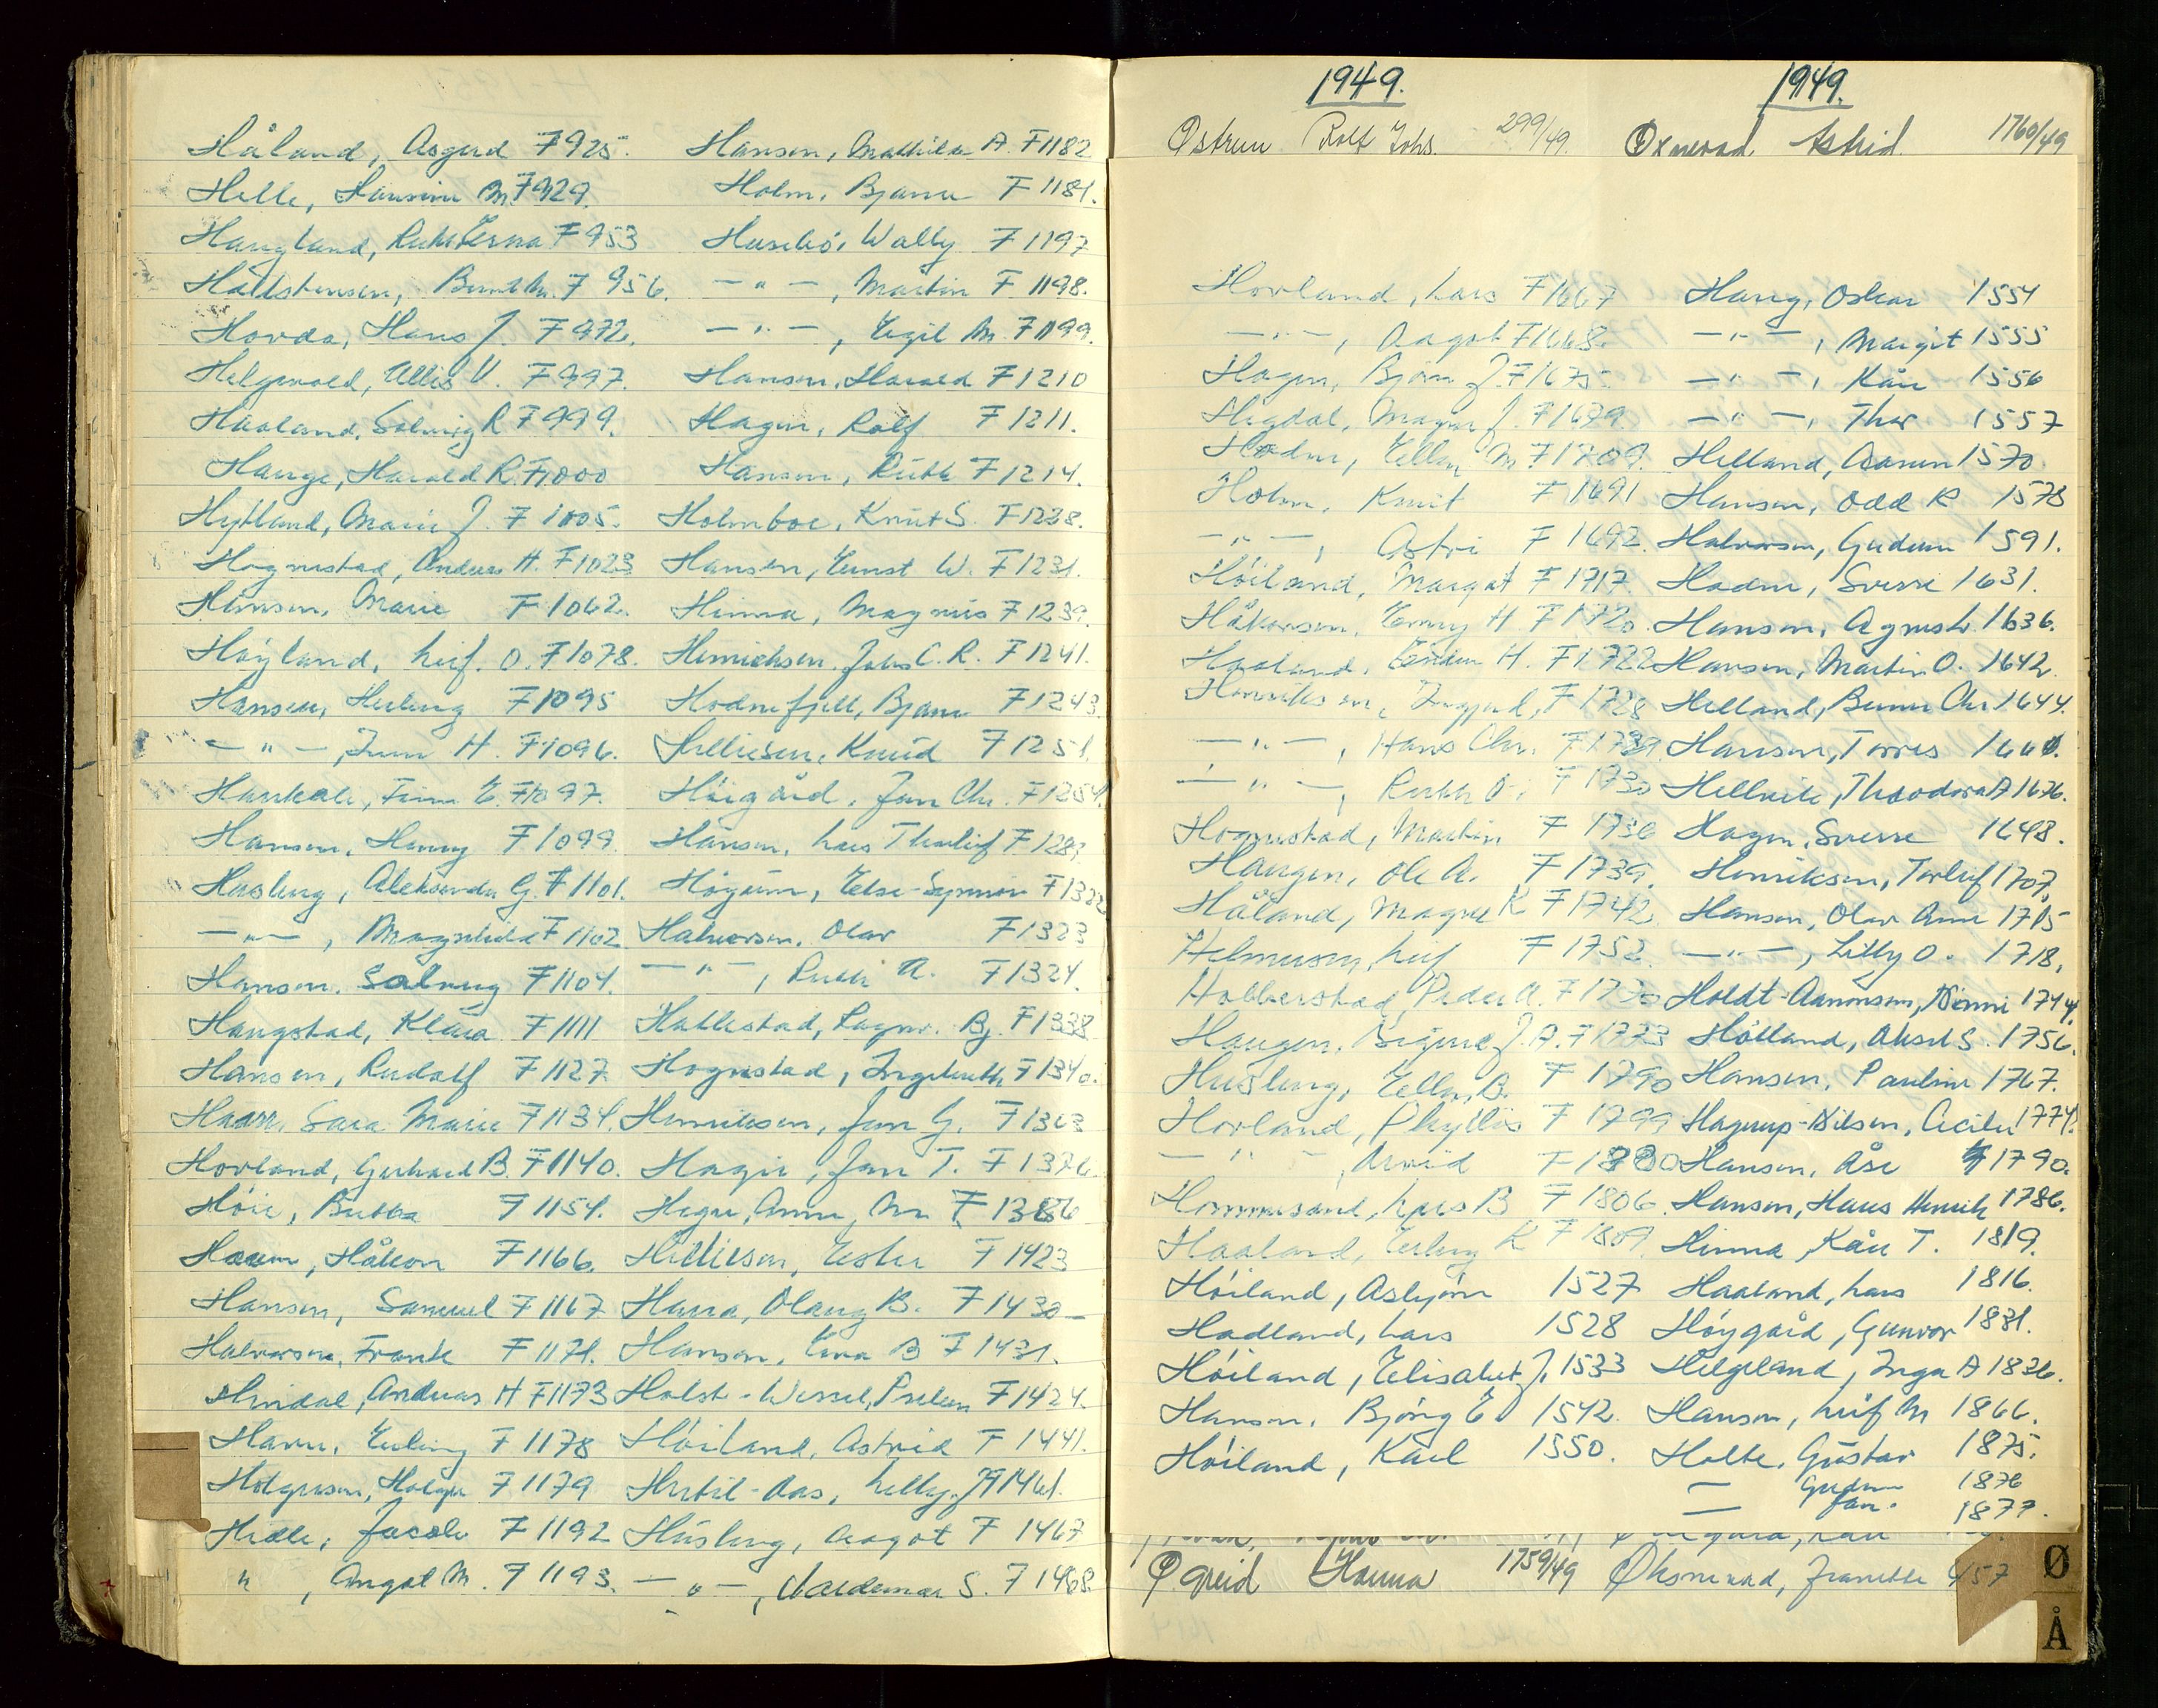 Håland, Asgerd F 925.
Helle, Hansine M. F 929.
Haugland, Ruth Erna F 953
Hallstensen, Bernt M. F 956.
Hovda, Hans J. F 972.
Helgevold, Ellis V. F 997.
Haaland, Solveig R F 999.
Hauge, Harald R. F 1000
Hytland, Marie J. F 1005.
Hognestad, Anders H. F 1023
Hansen, Marie F 1062.
Høyland, Leif. O. F 1078.
Hansen, Herberg F 1095
— " — , H. F 1096.
F 1097.
Hansen, Henny F 1099
Husberg, Aleksander G. F 1101.
— " — , Magnhild F 1102
Hansen, Solveig F 1104.
Haugstad, Klara F 1111
Hansen, Rudolf F 1127
Haarr, Sara Marie F 1134.
Hovland, Gerhard B. F 1140.
Høie, Betha F 1154.
Håkon F 1166.
Hansen, Samuel F 1167
Halvorsen, Frank F 1171.
Hindal, Andreas H F 1173
Erling F 1178
Holgersen, Holger F 1179
Helle, Jacob F 1192
" , Angal M. F 1193.
Hansen, Mathilde A. F 1182
Holm, Bjarne F 1181.
Husebø, Wally F 1197
— " — , Martin F 1198.
— " — , Egil M. F 1199.
Hansen, Harald F 1210
Hagen, Rolf F 1211.
Hansen, Ruth F 1214.
Holmboe, Knut S. F 1228.
Hansen, Ernst W. F 1231.
Hinna, Magnus F 1239.
Henrichsen, Johs C. R. F 1241.
Hodnefjell, Bjarne F 1243.
Helliesen, Knud F 1251.
Høigård, Jan Chr. F 1254.
Hansen, Lars Thorleif F 128
Else F 1322
Halvorsen, Olav F 1323
— " — , Ruth A. F 1324.
Hallestad, Ragnv. Bj. F 1338
Hognestad, Ingeborth F 1340.
Henriksen, Jan G. F 1363
Hagir, Jan T. F 1376
Hegre, Anne M. F 1386
Helliesen, Ester F 1423
Haara, Olaug B. F 1430
Hansen, Erna B F 1431.
Holst-Wessel, F 1424.
Høiland, Astrid F 1441.
Hertil-Aas, Lelly. J F 1461.
Husberg, Aagot F 1467
— " — , Valdemar S. F 1468.
1949. 1949.
Østrem Rolf Johs. 299/49. Øxnevad Astrid 1760/49
Hovland, Lars F 1667
— " — , Aagot F 1668.
Hagen, Bjørn J. F 1675.
Hegdal, Magne J. F 1679.
Hodne, Ellen M. F 1709.
Holm, Knut F 1691
— " — , Astri F 1692.
Høiland, Margot F 1717.
Håkonsen, Henny H F 1720.
Haaland, H. F 1722
Henriksen, Ingjerd, F 1728
— " — , Hans Chr. F 1729.
— " — , Ruth O. F 1730
Hognestad, Martin F 1736
Haugen, Ole A. F 1739.
Håland, Magne K F 1742
Helmersen, Leif F 1752.
Halberstad, Peder A. F 1770
Haugen, Birger J. A. F 1773
Husberg, Ella B. F 1790
Hovland, Phyllis F 1799
— " — , Arvid F 1800
Hommersand, Lars B F 1806.
Haaland, Erling K F 1809.
Høiland, Asbjørn 1527
Hadland, Lars 1528
Høiland, Elisabet J. 1533
Hansen, Bjørg E 1542.
Høiland, Karl 1550.
Haug, Oskar 1554
— " — , Margit 1555
— " — , Kåre 1556
— " — , Thor 1557
Helland, Aanen 1570
Hansen, Odd R 1578
Halvorsen, Gudrun 1591.
Hodne, Sverre 1631.
Hansen, Agnesh. 1636.
Hansen, Martin O. 1642
Helland, Berner Chr. 1644.
Hansen, Torres 1660.
Hellvik, Theodora A 1676.
Hagen, Sverre 1648.
Henriksen, Torleif 1707.
Hansen, Olav Arne 1715
— " — , Lilly O. 1718.
Holdt-Aanonsen, Nenni 1744.
Hølland, Aksel S. 1756.
Hansen, Pauline 1767.
Hagerup-Nilsen, Cecilie 1774.
Hansen, Åse 1790.
Hansen, Hans Henrik 1786.
Hinna, Kåre T. 1819.
Haaland, Lars 1816.
Høygård, Gunvor 1831.
Helgeland, Inga A 1836.
Hansen, Leif M 1866.
Holte, Gustav 1875.
— Gudrun 1876
— Jan. 1877.
Øgreid Hanna 1759/49 Øksnevad, Jeanette 457
Ø
Å